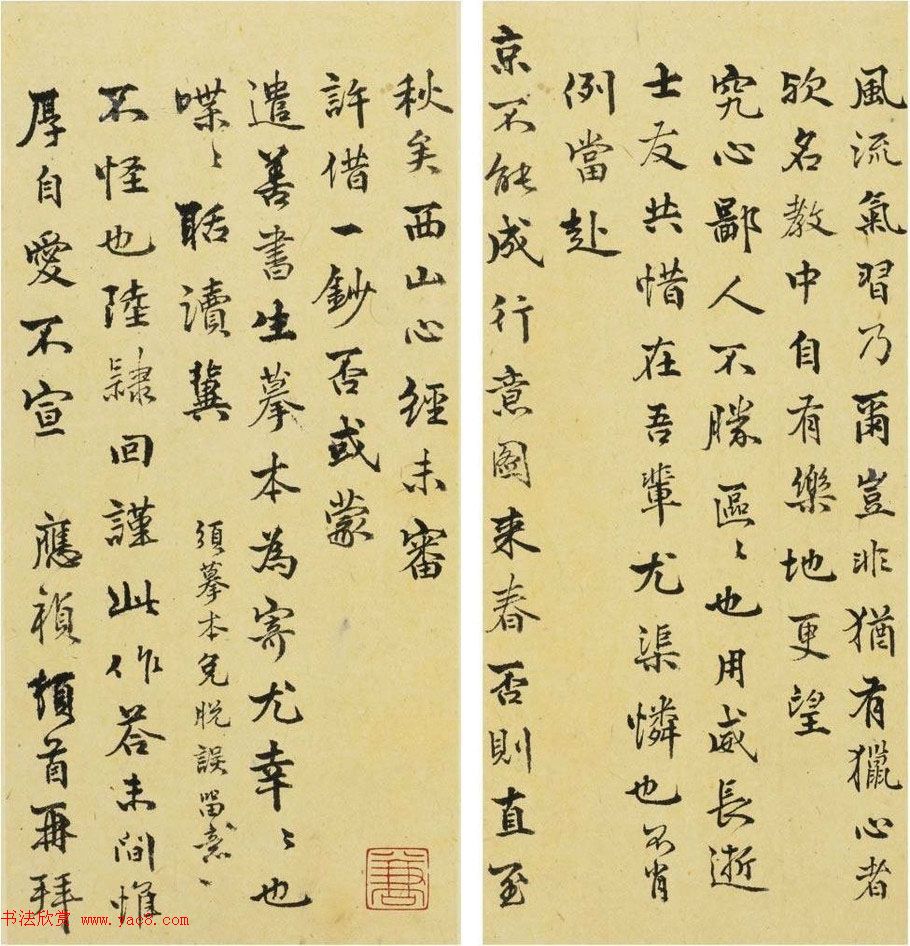 風流氣習乃爾豈非猶有獵心者
欤名教中自有樂地更望
究心鄙人不勝區〻也用威長逝
士友共惜在吾輩尤渠憐也不肖
例當赴
京不能成行意圖来春否則直至
秋矣西山心經未審
許借一鈔否或蒙
遣善書生摹本為寄尤幸〻也
喋〻聒讀冀
須摹本免脱誤留意〻
不怪也陸隸回謹此作答未間惟
厚自愛不宣 應禎頓首再拜
书法欣赏 www.yac8.com